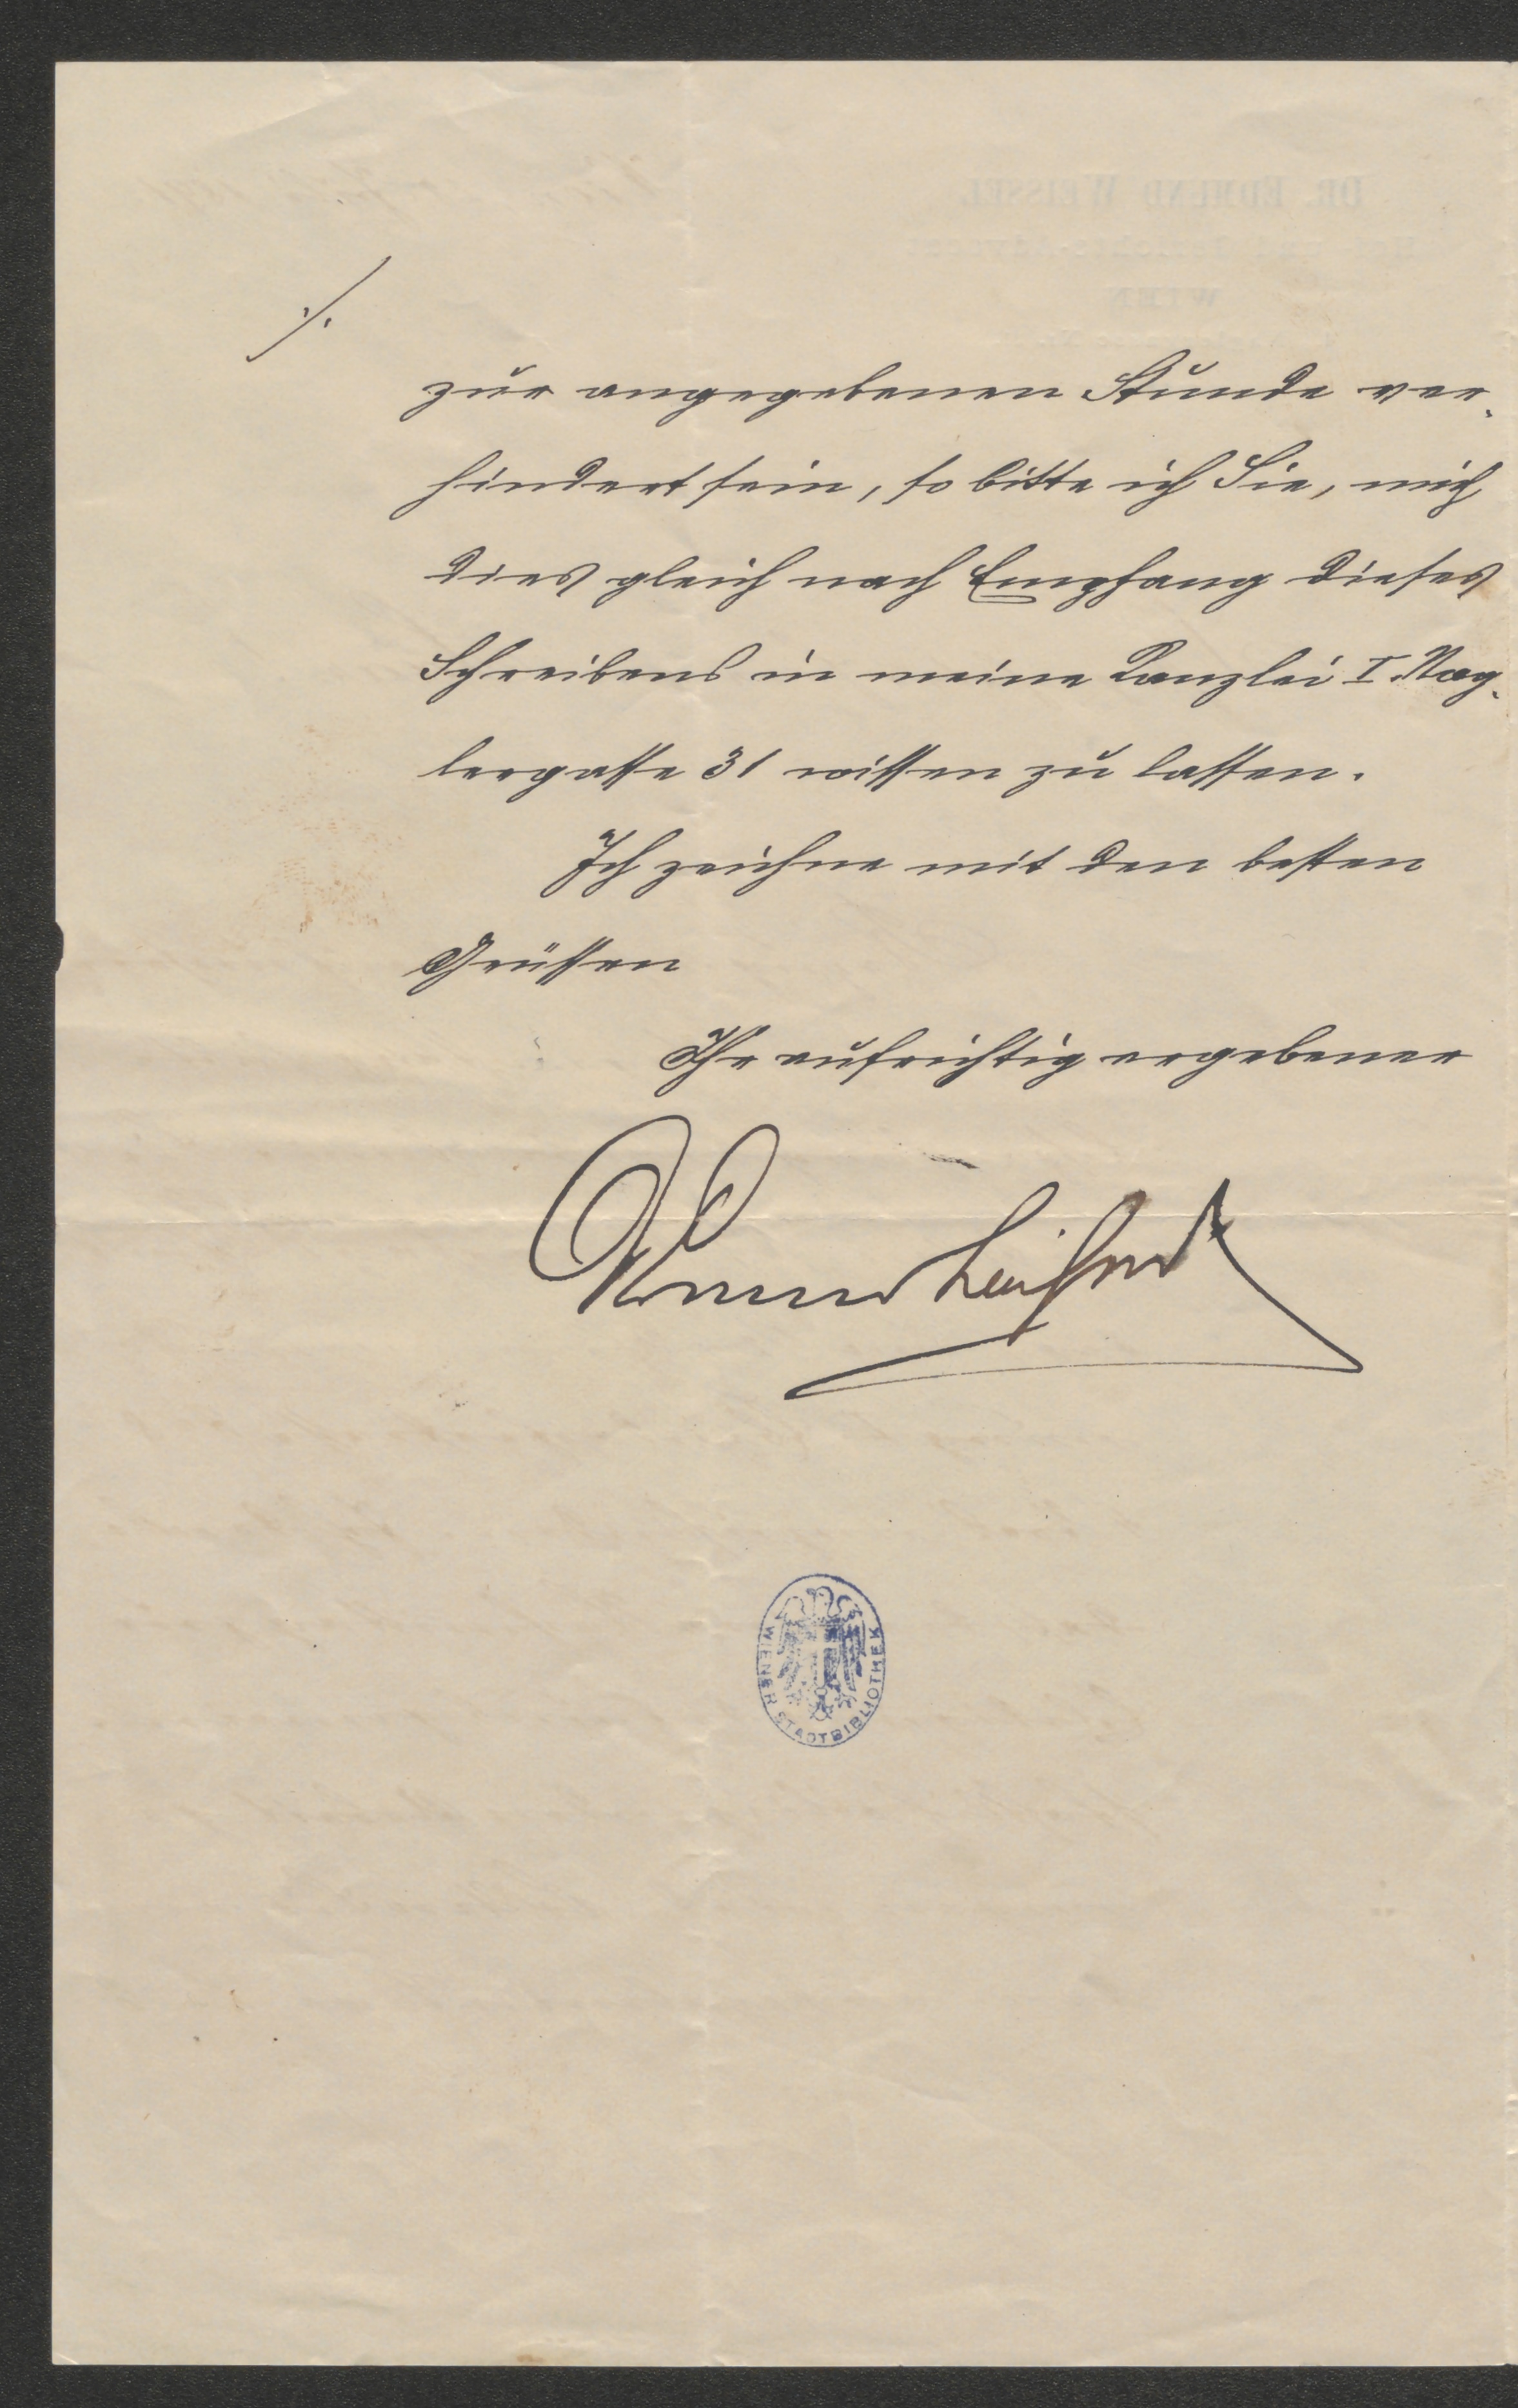 ./.
zur angegebenen Stunde ver-
hindert sein, so bitte ich Sie, mich
dies gleich nach Empfang dieses
Schreibens in meine Kanzlei I. Nag-
lergasse 31 wissen zu lassen.
Ich zeichne mit den besten
Grüssen
Ihr aufrichtig ergebener
WIENER STADTBIBLIOTHEK
DR. EDMUND WEISSEL
WIEN